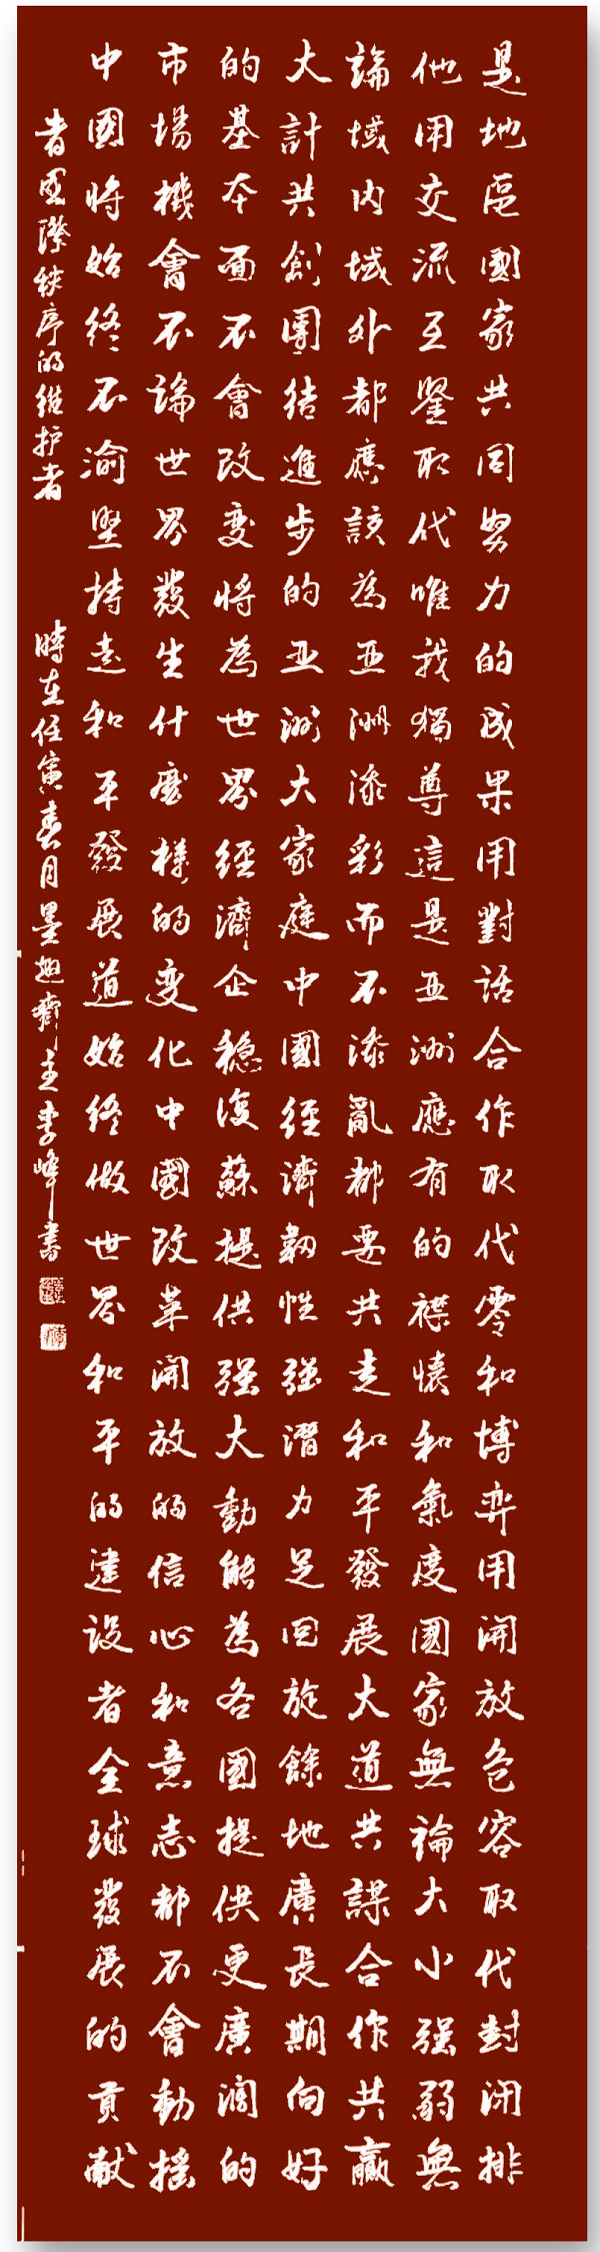 是地區國家共同努力的成果用對話合作取代零和博弈用開放包容取代封闭排
他用交流互鑒取代唯我獨尊這是亚洲應有的襟懷和氣度國家無論大小强弱無
論域内域外都應該為亚洲添彩而不添亂都要共走和平發展大道共謀合作共贏
大計共創團结進步的亚洲大家庭中國經濟韌性强潛力足回旋餘地廣長期向好
的基本面不會改变将為世界經濟企稳復蘇提供强大動能為各國提供更廣阔的
市場機會不論世界發生什麼樣的变化中國改革開放的信心和意志都不會動摇
中國将始终不渝坚持走和平發展道始终做世界和平的建设者全球發展的貢献
者国際秩序的维护者 時在任寅春月墨齋主李峰書